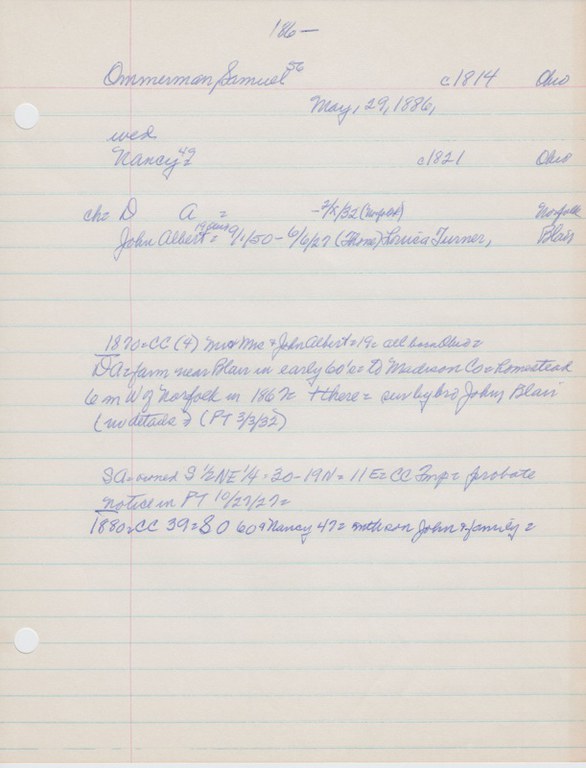 186—
Ommerman, Samuel 56 c1814 Ohio
May, 29, 1886,
wed
Nancy 49 = c1821 Ohio
ch= D A = -2/ /32 Norfolk
John Albert = 9/1/50 - 6/6/27 (Home) Louisa Turner, Blair
1870=CC (4) Mr & Mrs & John Albert=19= all born Ohio=
DA=farm near Blair in early 60's= to Madison Co= homestead
6 m W of Norfolk in 1867= there= surv by bro John, Blair
(no details) (PT 3/3/32)
SA= owned S 1/2 NE 1/4 - 30-19N = 11E= CC Twp= probate
notice in PT 10/27/27=
1880=CC 39= S O 60 & Nancy 47= with son John & family=